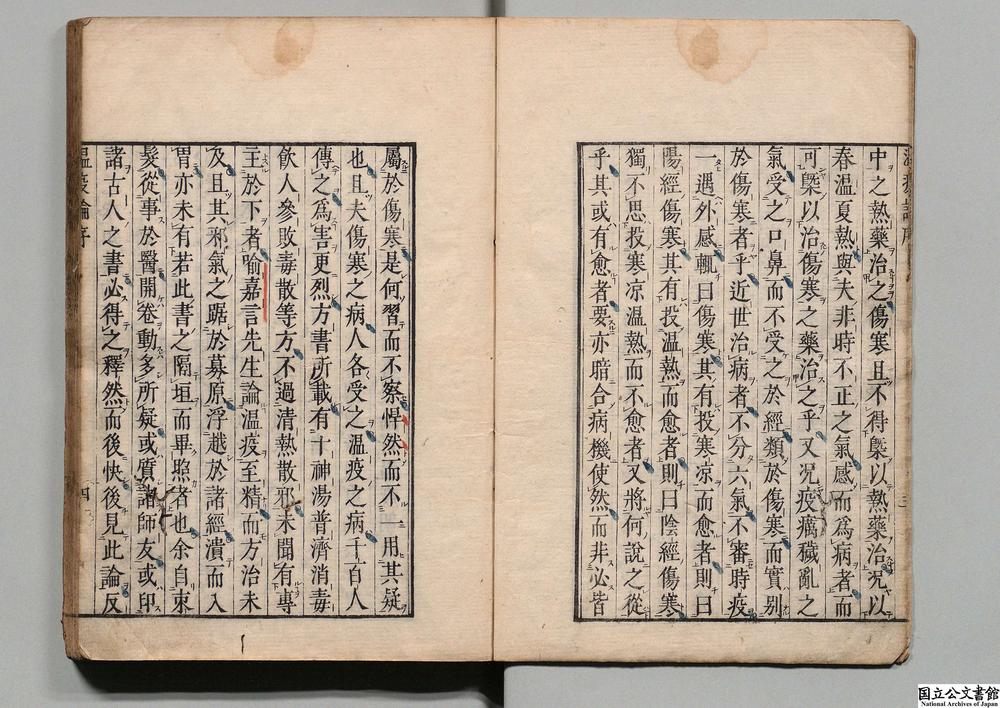 中之熱藥治之傷寒且不得槩以熱藥治況以
春溫夏熱與夫非時不正之氣感而爲病者而
可槩以治傷寒之藥治之乎又況疫癘穢亂之
氣受之口鼻而不受之於經類於傷寒而實別
於傷寒者乎近世治病者不分六氣不審時疫
一遇外感輒曰傷寒其有投寒凉而愈者則曰
陽經傷寒其有投溫熱而愈者則曰陰經傷寒
獨不思投寒凉溫熱而不愈者又將何說之從
乎其或有愈者要亦暗合病機使然而非必皆
屬於傷寒是何習而不察悍然而不一用其疑
也且夫傷寒之病人各受之溫疫之病千百人
傳之爲害更烈方書所載有十神湯普濟消毒
飲人參敗毒散等方不過清熱散邪未聞有專
主於下者喻嘉言先生論溫疫至精而方治未
及且其邪氣之踞於募原浮越於諸經潰而入
胃亦未有若此書之隔垣而畢照者也余自束
髮從事於醫開卷動多所疑或質諸師友或印
諸古人之書必得之釋然而後快後見此論反
溫疫論序
四
国立公文書館
National Archives of Japan